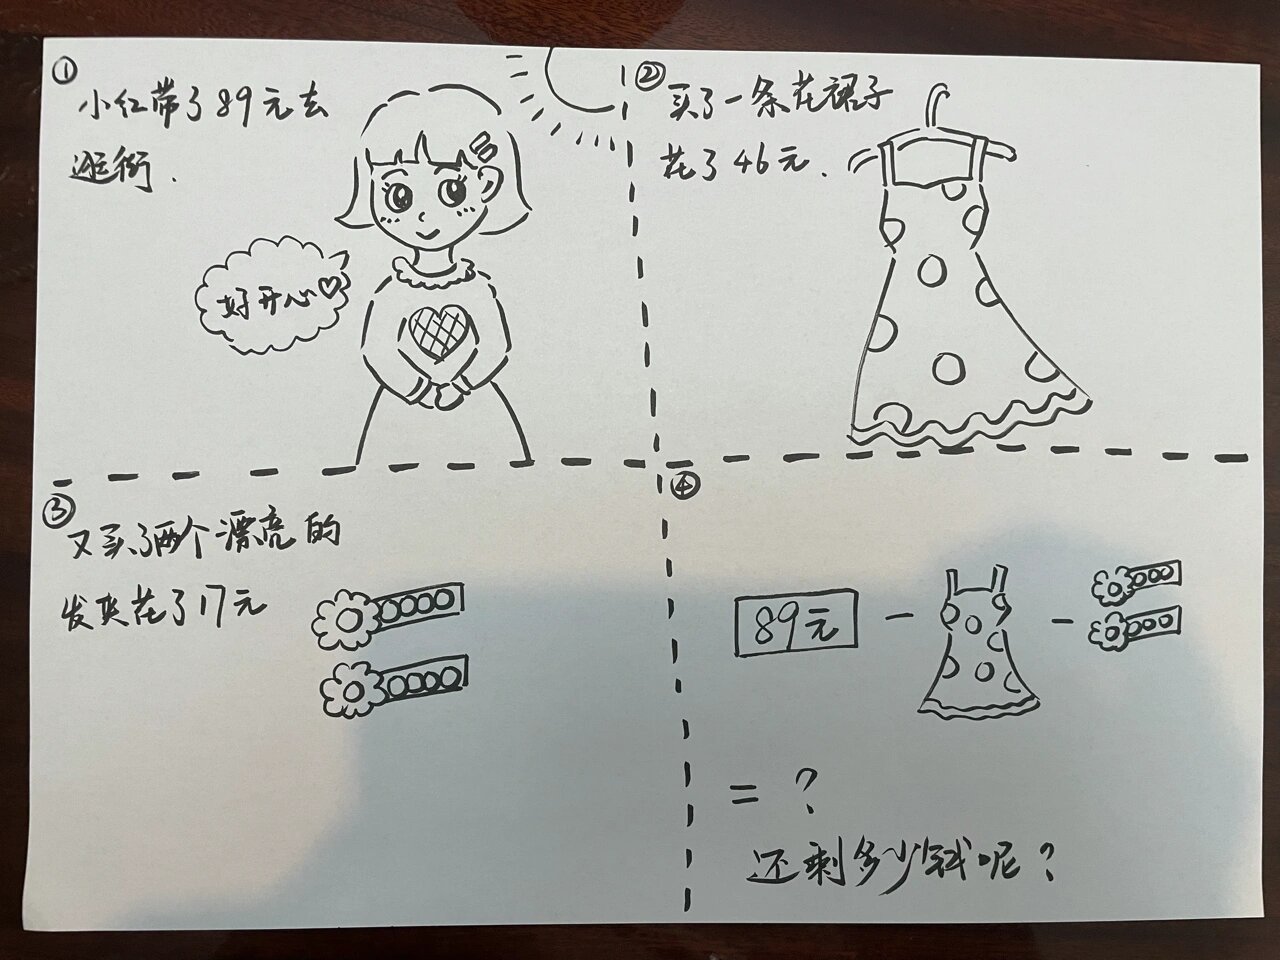 ①
小红带了89元去
逛街.
好开心
②
买了一条花裙子
花了46元.
③
又买了两个漂亮的
发夹花了17元
④
89元 - -
= ?
还剩多少钱呢?